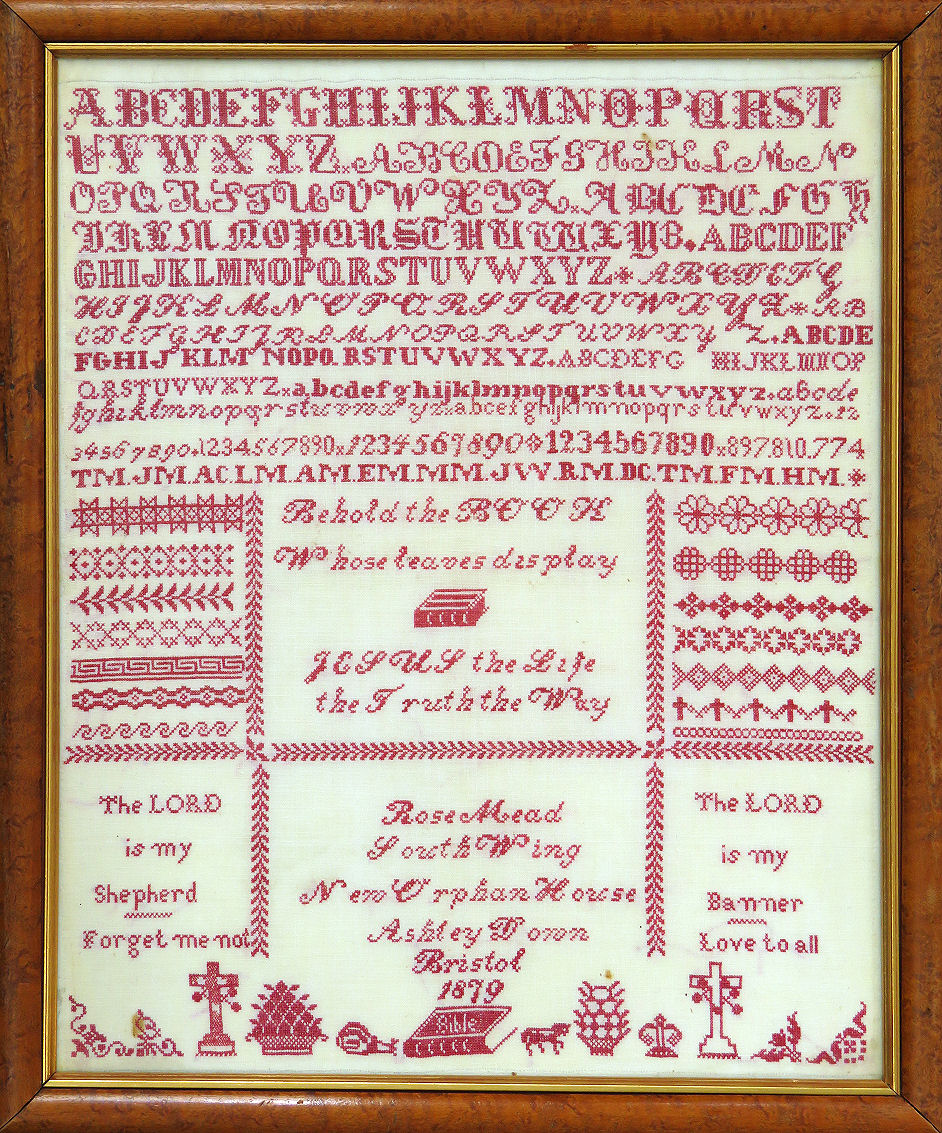 ABCDEFGHIJKLMNOPQRST
UVWXYZ.ABCDEFGHIJKLMN
OPQRSTUVWXYZ.ABCDEFGH
IKLMNOPQRSTUVWXYZ.ABCDEF
GHIJKLMNOPQRSTUVWXYZ*ABCDEFG
HIJKLMNOPQRSTUVWXYZ*AB
CDEFGHIJKLMNOPQRSTUVWXYZ.ABCDE
FGHIJKLMNOPQ.RSTUVWXYZ.ABCDEFG HIJKLMNOP
QRSTUVWXYZ.abcdefghijklmnopqrstuvwxyz.abcde
fghiklmnopqrstuvwxyz.abcefghijklmnopqrstuvwxyz.12
34567890.1234567890x1234567890*1234567890x897.810.774
TM.JM.AC.LM.AM.EM.MM.JW.RM.DC.TM.FM.HM.*
Behold the BOOK
Whose leaves display
JESUS the Life
the Truth the Way
The LORD
is my
Shepherd
Forget me not
Rose Mead
South Wing
New Orphan House
Ashley Down
Bristol
1879
The LORD
is my
Banner
Love to all
Bible